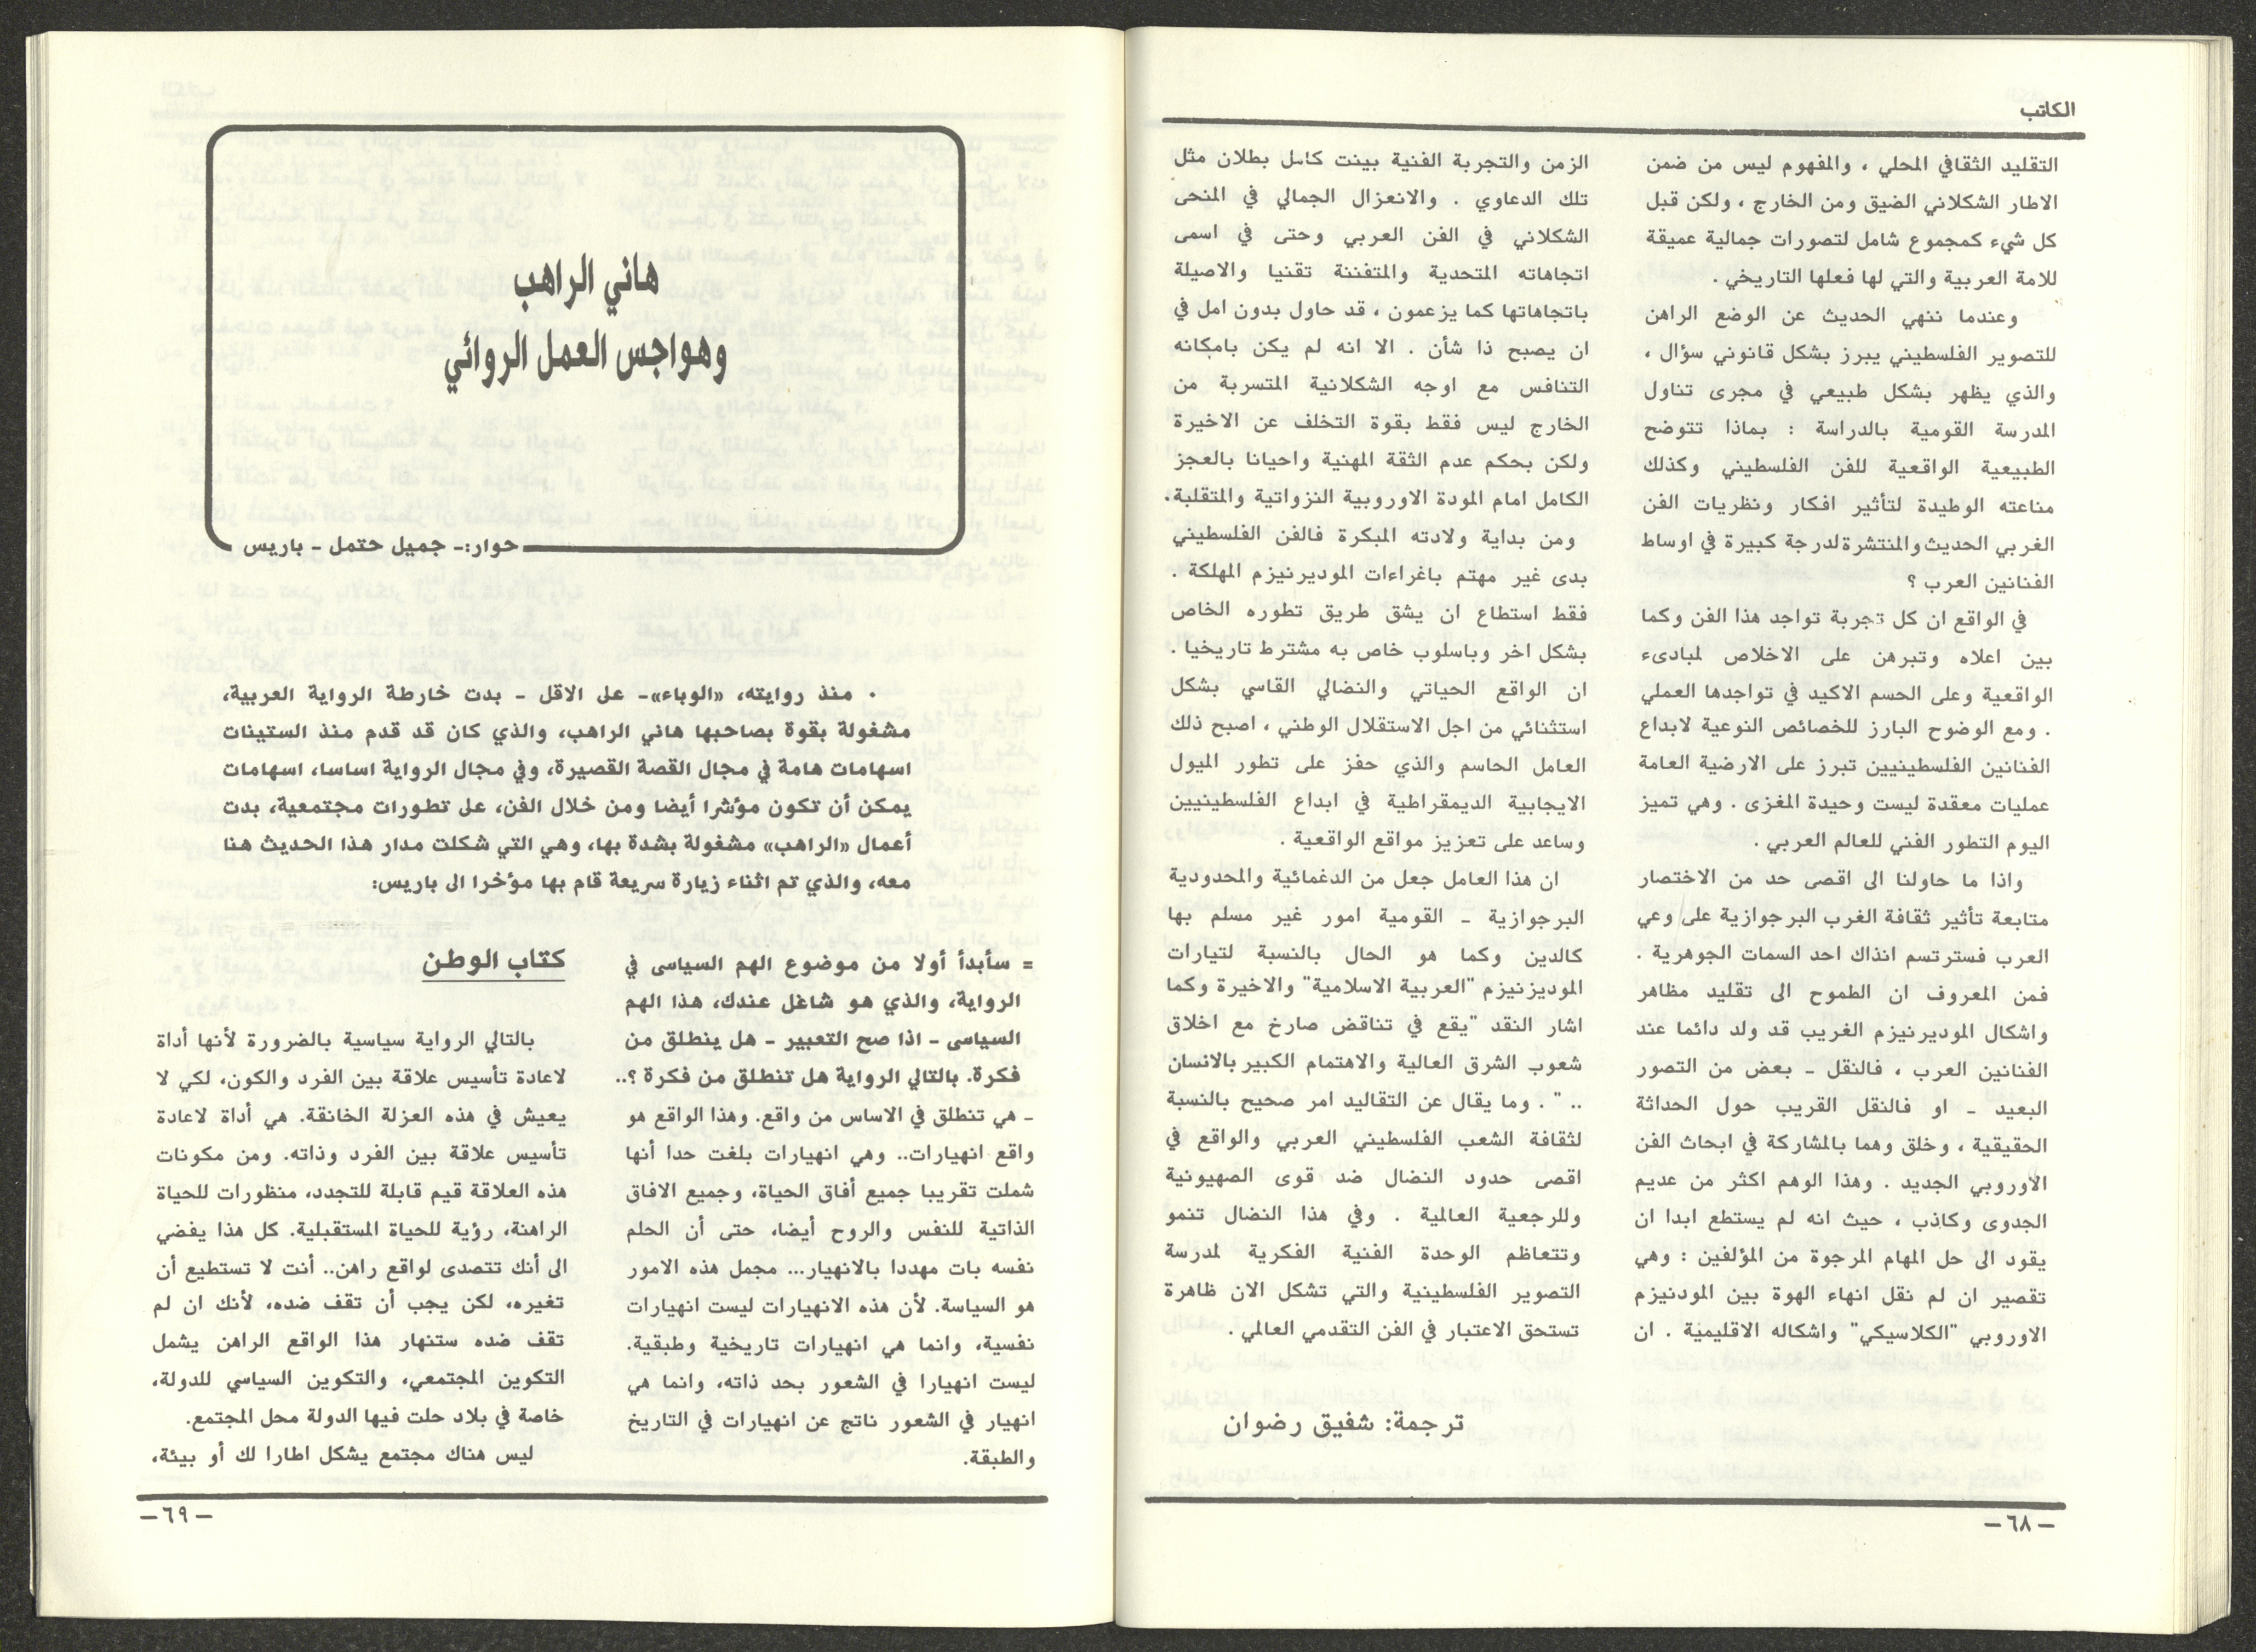 الكاتب
التقليد الثقافي المحلي ، والمفهوم ليس من ضمن
الاطار الشكلاني الضيق ومن الخارج ، ولكن قبل
كل شيء كمجموع شامل لتصورات جمالية عميقة
للامة العربية والتي لها فعلها التاريخي .
وعندما ننهي الحديث عن الوضع الراهن
للتصوير الفلسطيني يبرز بشكل قانوني سؤال ،
والذي يظهر بشكل طبيعي في مجرى تناول
المدرسة القومية بالدراسة : بماذا تتوضح
الطبيعية الواقعية للفن الفلسطيني وكذلك
مناعته الوطيدة لتأثير افكار ونظريات الفن
الغربي الحديث والمنتشرة لدرجة كبيرة في اوساط
الفنانين العرب ؟
في الواقع ان كل تجربة تواجد هذا الفن وكما
بين اعلاه وتبرهن على الاخلاص لمبادىء
الواقعية وعلى الحسم الاكيد في تواجدها العملي
. ومع الوضوح البارز للخصائص النوعية لابداع
الفنانين الفلسطينيين تبرز على الارضية العامة
عمليات معقدة ليست وحيدة المغزى . وهي تميز
اليوم التطور الفني للعالم العربي .
واذا ما حاولنا الى اقصى حد من الاختصار
متابعة تأثير ثقافة الغرب البرجوازية على وعي
العرب فسترتسم انذاك احد السمات الجوهرية .
فمن المعروف ان الطموح الى تقليد مظاهر
واشكال الموديرنيزم الغريب قد ولد دائما عند
الفنانين العرب ، فالنقل ـ بعض من التصور
البعيد ـ او فالنقل القريب حول الحداثة
الحقيقية ، وخلق وهما بالمشاركة في ابحاث الفن
الاوروبي الجديد . وهذا الوهم اكثر من عديم
الجدوى وكاذب ، حيث انه لم يستطع ابدا ان
يقود الى حل المهام المرجوة من المؤلفين : وهي
تقصير ان لم نقل انهاء الهوة بين المودنيزم
الاوروبي "الكلاسيكي" واشكاله الاقليمية . ان
الزمن والتجربة الفنية بينت كامل بطلان مثل
تلك الدعاوي . والانعزال الجمالي في المنحى
الشكلاني في الفن العربي وحتى في اسمى
اتجاهاته المتحدية والمتفننة تقنيا والاصيلة
باتجاهاتها كما يزعمون ، قد حاول بدون امل في
ان يصبح ذا شأن . الا انه لم يكن بامكانه
التنافس مع اوجه الشكلانية المتسربة من
الخارج ليس فقط بقوة التخلف عن الاخيرة
ولكن بحكم عدم الثقة المهنية واحيانا بالعجز
الكامل امام المودة الاوروبية النزواتية والمتقلبة.
ومن بداية ولادته المبكرة فالفن الفلسطيني
بدى غير مهتم باغراءات الموديرنيزم المهلكة .
فقط استطاع ان يشق طريق تطوره الخاص
بشكل اخر وباسلوب خاص به مشترط تاريخيا .
ان الواقع الحياتي والنضالي القاسي بشكل
استثنائي من اجل الاستقلال الوطني ، اصبح ذلك
العامل الحاسم والذي حفز على تطور الميول
الايجابية الديمقراطية في ابداع الفلسطينيين
وساعد على تعزيز مواقع الواقعية .
ان هذا العامل جعل من الدغمائية والمحدودية
البرجوازية ـ القومية امور غير مسلم بها
كالدين وكما هو الحال بالنسبة لتيارات
الموديزنيزم "العربية الاسلامية" والاخيرة وكما
اشار النقد "يقع في تناقض صارخ مع اخلاق
شعوب الشرق العالية والاهتمام الكبير بالانسان
.. " . وما يقال عن التقاليد امر صحيح بالنسبة
لثقافة الشعب الفلسطيني العربي والواقع في
اقصى حدود النضال ضد قوى الصهيونية
وللرجعية العالمية . وفي هذا النضال تنمو
وتتعاظم الوحدة الفنية الفكرية لمدرسة
التصوير الفلسطينية والتي تشكل الان ظاهرة
تستحق الاعتبار في الفن التقدمي العالمي .
ترجمة: شفيق رضوان
— ٦٨ —
هاني الراهب
وهواجس العمل الروائي
حوار:ـ جميل حتمل ـ باريس
. منذ روايته، «الوباء»ـ على الاقل ـ بدت خارطة الرواية العربية،
مشغولة بقوة بصاحبها هاني الراهب، والذي كان قد قدم منذ الستينات
اسهامات هامة في مجال القصة القصيرة، وفي مجال الرواية اساسا، اسهامات
يمكن أن تكون مؤشرا أيضا ومن خلال الفن، على تطورات مجتمعية، بدت
أعمال «الراهب» مشغولة بشدة بها، وهي التي شكلت مدار هذا الحديث هنا
معه، والذي تم اثناء زيارة سريعة قام بها مؤخرا الى باريس:
= سأبدأ أولا من موضوع الهم السياسى في
الرواية، والذي هو شاغل عندك، هذا الهم
السياسى ـ اذا صح التعبير ـ هل ينطلق من
فكرة. بالتالي الرواية هل تنطلق من فكرة ؟..
ـ هي تنطلق في الاساس من واقع. وهذا الواقع هو
واقع انهيارات.. وهي انهيارات بلغت حدا أنها
شملت تقريبا جميع أفاق الحياة، وجميع الافاق
الذاتية للنفس والروح أيضا، حتى أن الحلم
نفسه بات مهددا بالانهيار... مجمل هذه الامور
هو السياسة. لأن هذه الانهيارات ليست انهيارات
نفسية، وانما هي انهيارات تاريخية وطبقية.
ليست انهيارا في الشعور بحد ذاته، وانما هي
انهيار في الشعور ناتج عن انهيارات في التاريخ
والطبقة.
كتاب الوطن
بالتالي الرواية سياسية بالضرورة لأنها أداة
لاعادة تأسيس علاقة بين الفرد والكون، لكي لا
يعيش في هذه العزلة الخانقة. هي أداة لاعادة
تأسيس علاقة بين الفرد وذاته. ومن مكونات
هذه العلاقة قيم قابلة للتجدد، منظورات للحياة
الراهنة، رؤية للحياة المستقبلية. كل هذا يفضي
الى أنك تتصدى لواقع راهن.. أنت لا تستطيع أن
تغيره، لكن يجب أن تقف ضده، لأنك ان لم
تقف ضده ستنهار هذا الواقع الراهن يشمل
التكوين المجتمعي، والتكوين السياسي للدولة،
خاصة في بلاد حلت فيها الدولة محل المجتمع.
ليس هناك مجتمع يشكل اطارا لك أو بيئة،
— ٦٩ —